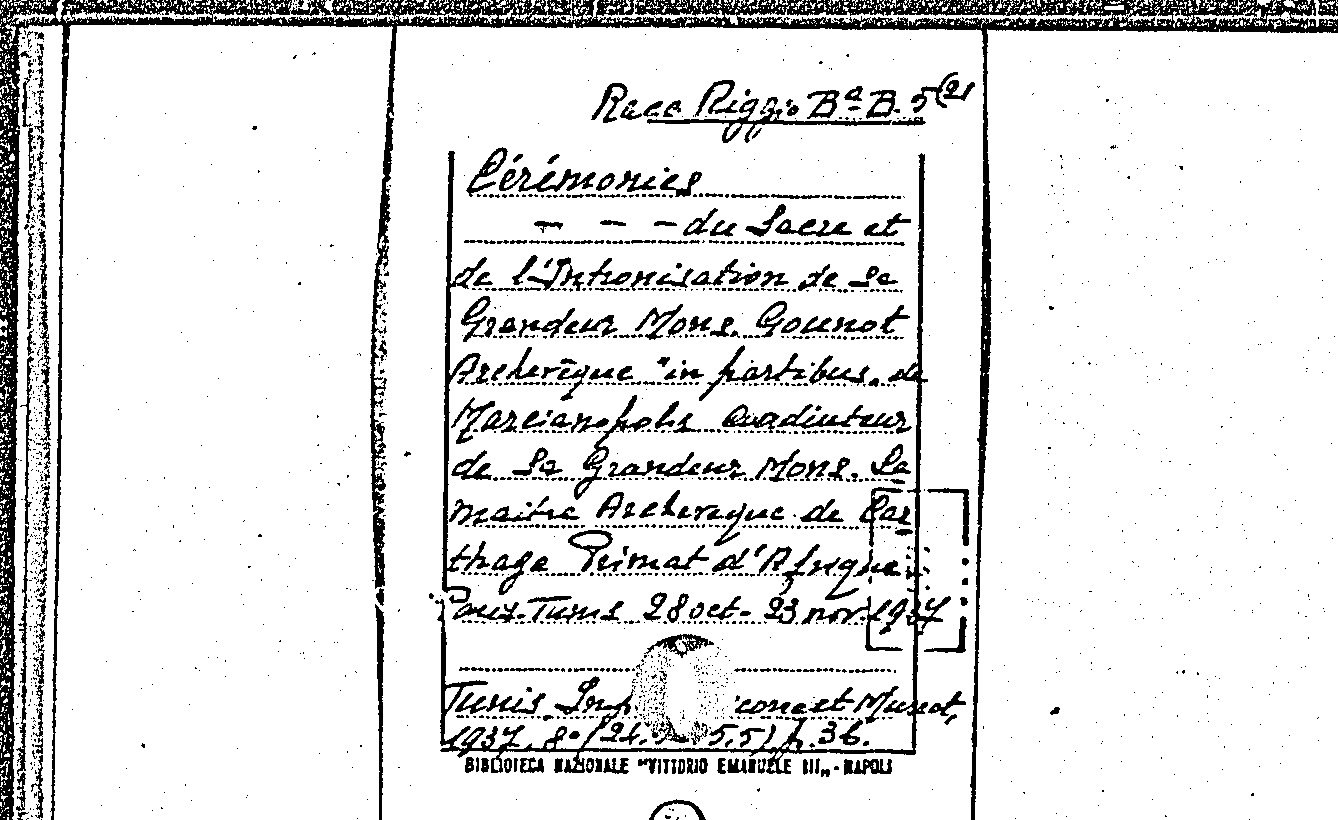 Racc Riggio Bª B. 5(2)
Cérémonies
— — — du Sacre et
de l'Intronisation de Sa
Grandeur Mons. Gounot
Archevêque "in partibus" de
Marcianopolis Coadiuteur
de Sa Grandeur Mons. Le
maitre Archeveque de Car
thage Primat d'Afrique
Tunis 28 oct - 23 nov. 1937
Tunis Imp et Muscat,
1937. 8° (24. 5.5) p. 36.
BIBLIOTECA NAZIONALE "VITTORIO EMANUELE III" - NAPOLI